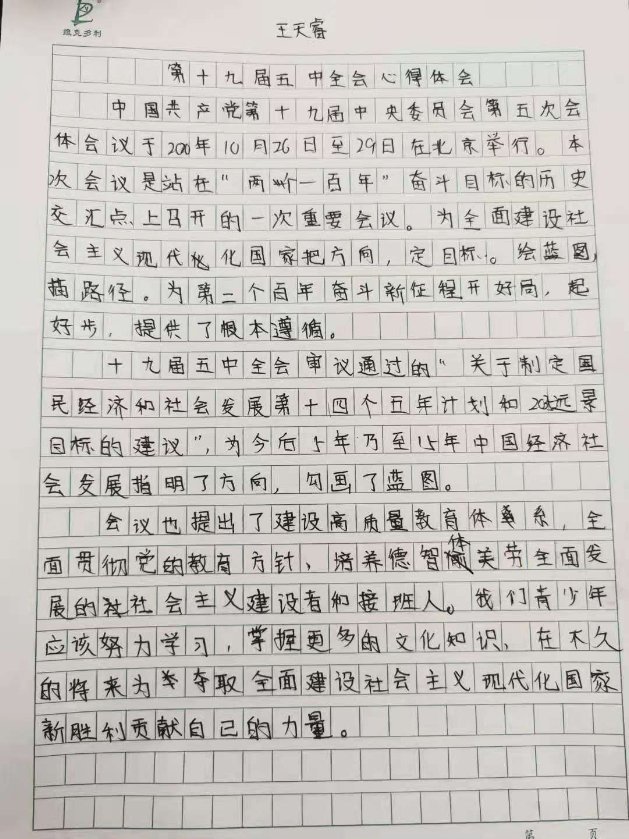 维克多利
王天睿
第十九届五中全会心得体会
中国共产党第十九届中央委员会第五次会
体会议于2020年10月26日至29日在北京举行。本
次会议是站在“两个一百年”奋斗目标的历史
交汇点上召开的一次重要会议。为全面建设社
会主义现代化国家把方向,定目标。绘蓝图,
描路径。为第二个百年奋斗新征程开好局,起
好步,提供了根本遵循。
十九届五中全会审议通过的“关于制定国
民经济和社会发展第十四个五年计划和远景
目标的建议”,为今后5年乃至15年中国经济社
会发展指明了方向,勾画了蓝图。
会议也提出了建设高质量教育体系,全
面贯彻党的教育方针、培养德智体美劳全面发
展的社会主义建设者和接班人。我们青少年
应该努力学习,掌握更多的文化知识,在不久
的将来为夺取全面建设社会主义现代化国家
新胜利贡献自己的力量。
第 页